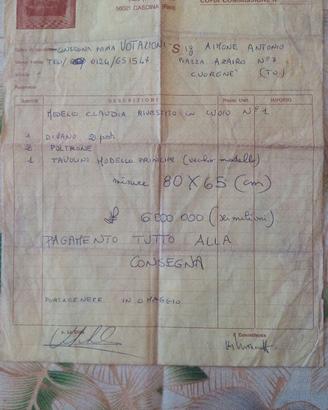 56021 CASCINA (Pisa)
COPIA COMMISSIONE N°
CONSEGNA PRIMA VOTAZIONI
S ig AIMONE ANTONIO
TEL/ 0124/651547
PIAZZA AZAIRO N° 7
CUORGNE' (TO)
Quantità DESCRIZIONE Prezzo Unit. IMPORTO
MODELLO CLAUDIA RIVESTITO IN N° 1
1 DIVANO 2 posti
2 POLTRONE
1 TAVOLINO MODELLO PRINCIPE (vecchio modello)
misure 80 X 65 (cm)
£ 6000 000 (sei milioni)
PAGAMENTO TUTTO ALLA
CONSEGNA
IN OMAGGIO
Il Committente